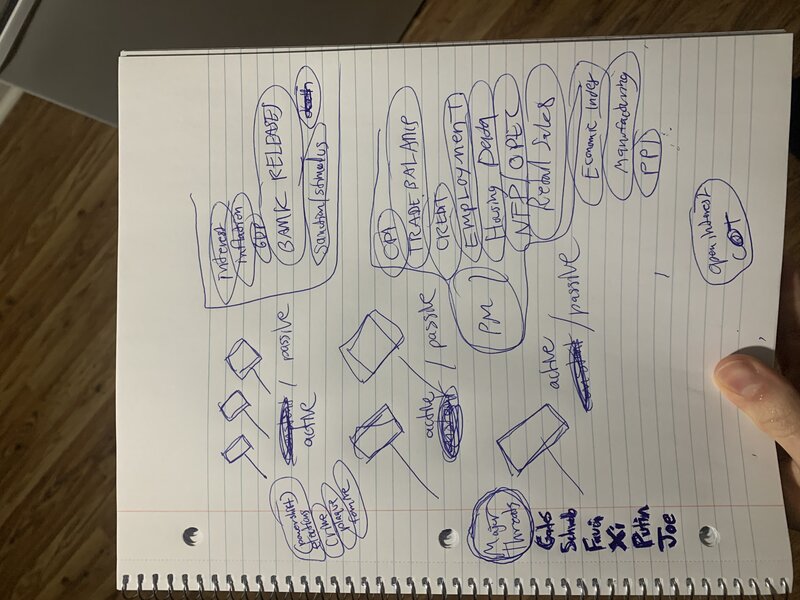 Interest
Inflation
GDP
BANK RELEASES
Sanction/stimulus
active / passive
power shift
elections
crime
plague
famine
CPI
TRADE BALANCE
CREDIT
EMPLOYMENT
Housing Data
NFP/OPEC
Retail Sales
PMI
active / passive
Major
threats
Schwab
Fauci
Xi
Putin
Joe
active / passive
Economic Index
Manufacturing
PPI
open interest
COT